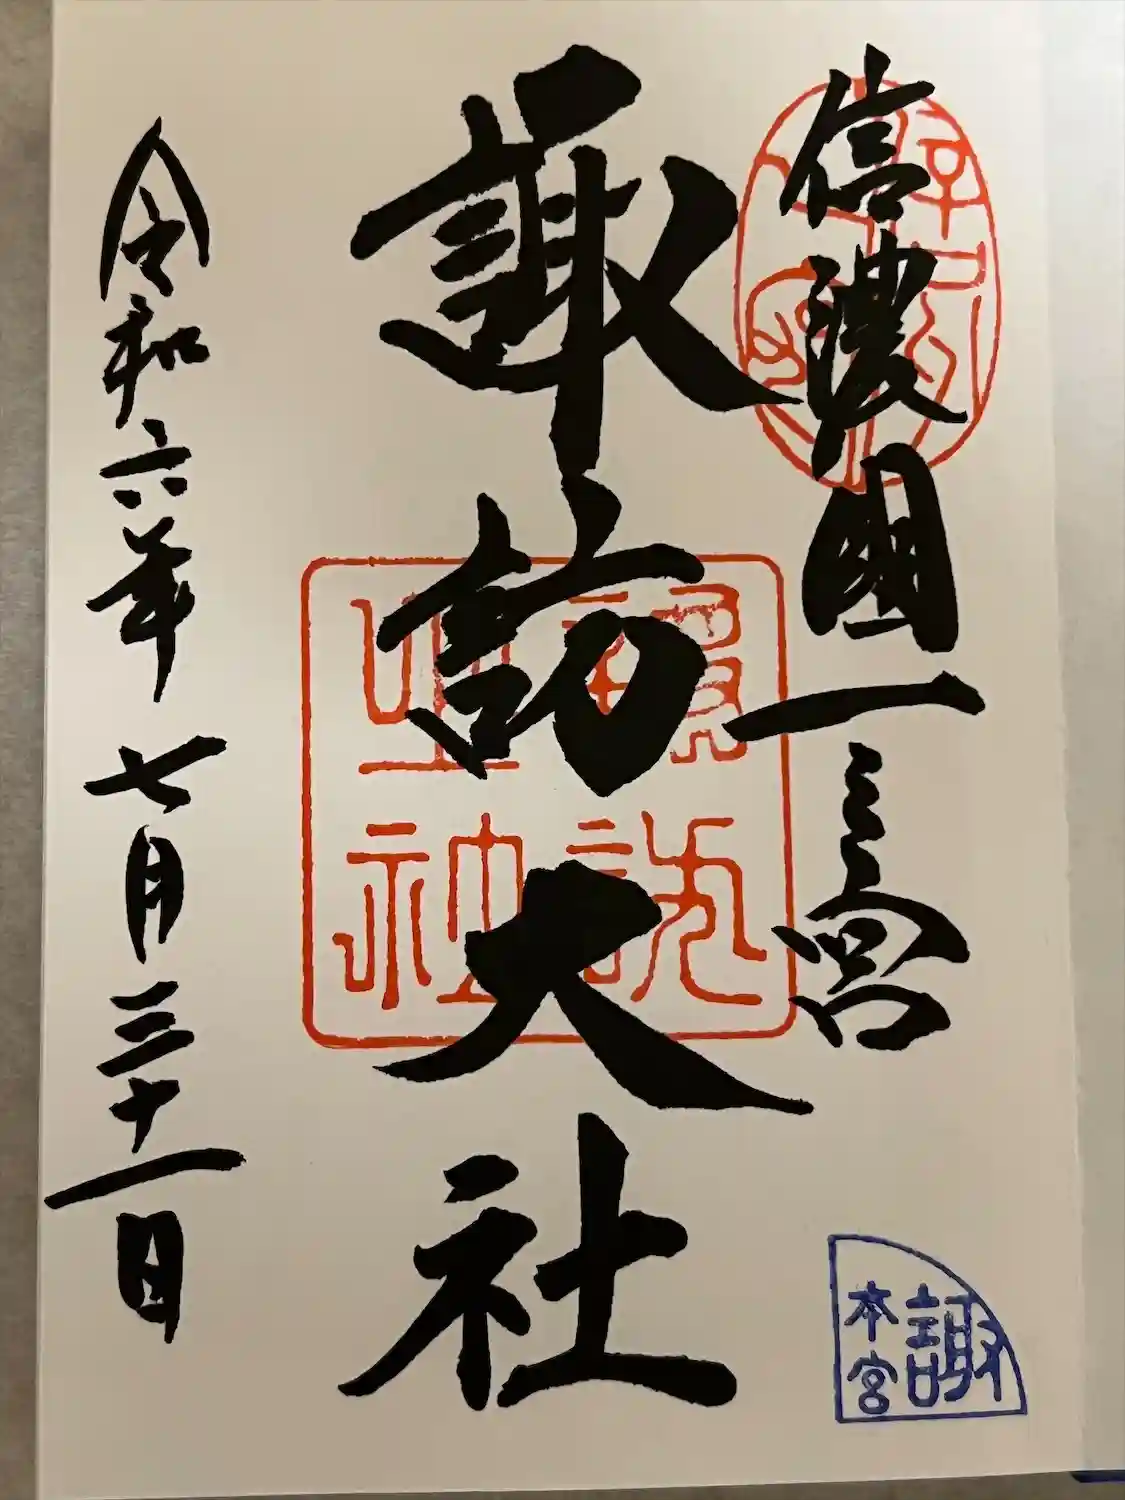 信濃國一之宮
諏訪大社
令和六年七月三十一日
諏
本宮